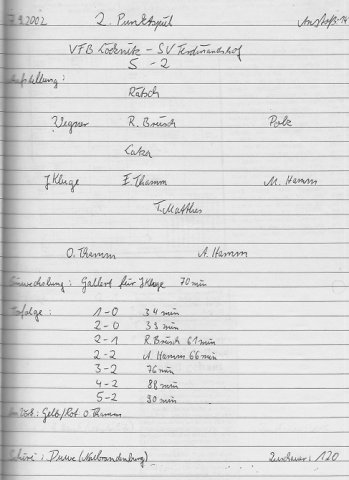 7.9.2002 2. Punktspiel Anstoß: 14
VFB Löcknitz - SV Ferdinandshof
5 - 2
Aufstellung:
Rätsch
Wegner R. Brüsch Polz
Catza
J Kluge E. Thamm M. Hamm
T. Matthes
O. Thamm A. Hamm
Einwechslung: Gallert für J Kluge 70 min
Torfolge: 1-0 34 min
2-0 39 min
2-1 R. Brüsch 61 min
2-2 A. Hamm 66 min
3-2 76 min
4-2 88 min
5-2 90 min
Gelb/Rot O Thamm
Schiri: Duwe (Neubrandenburg) Zuschauer: 120